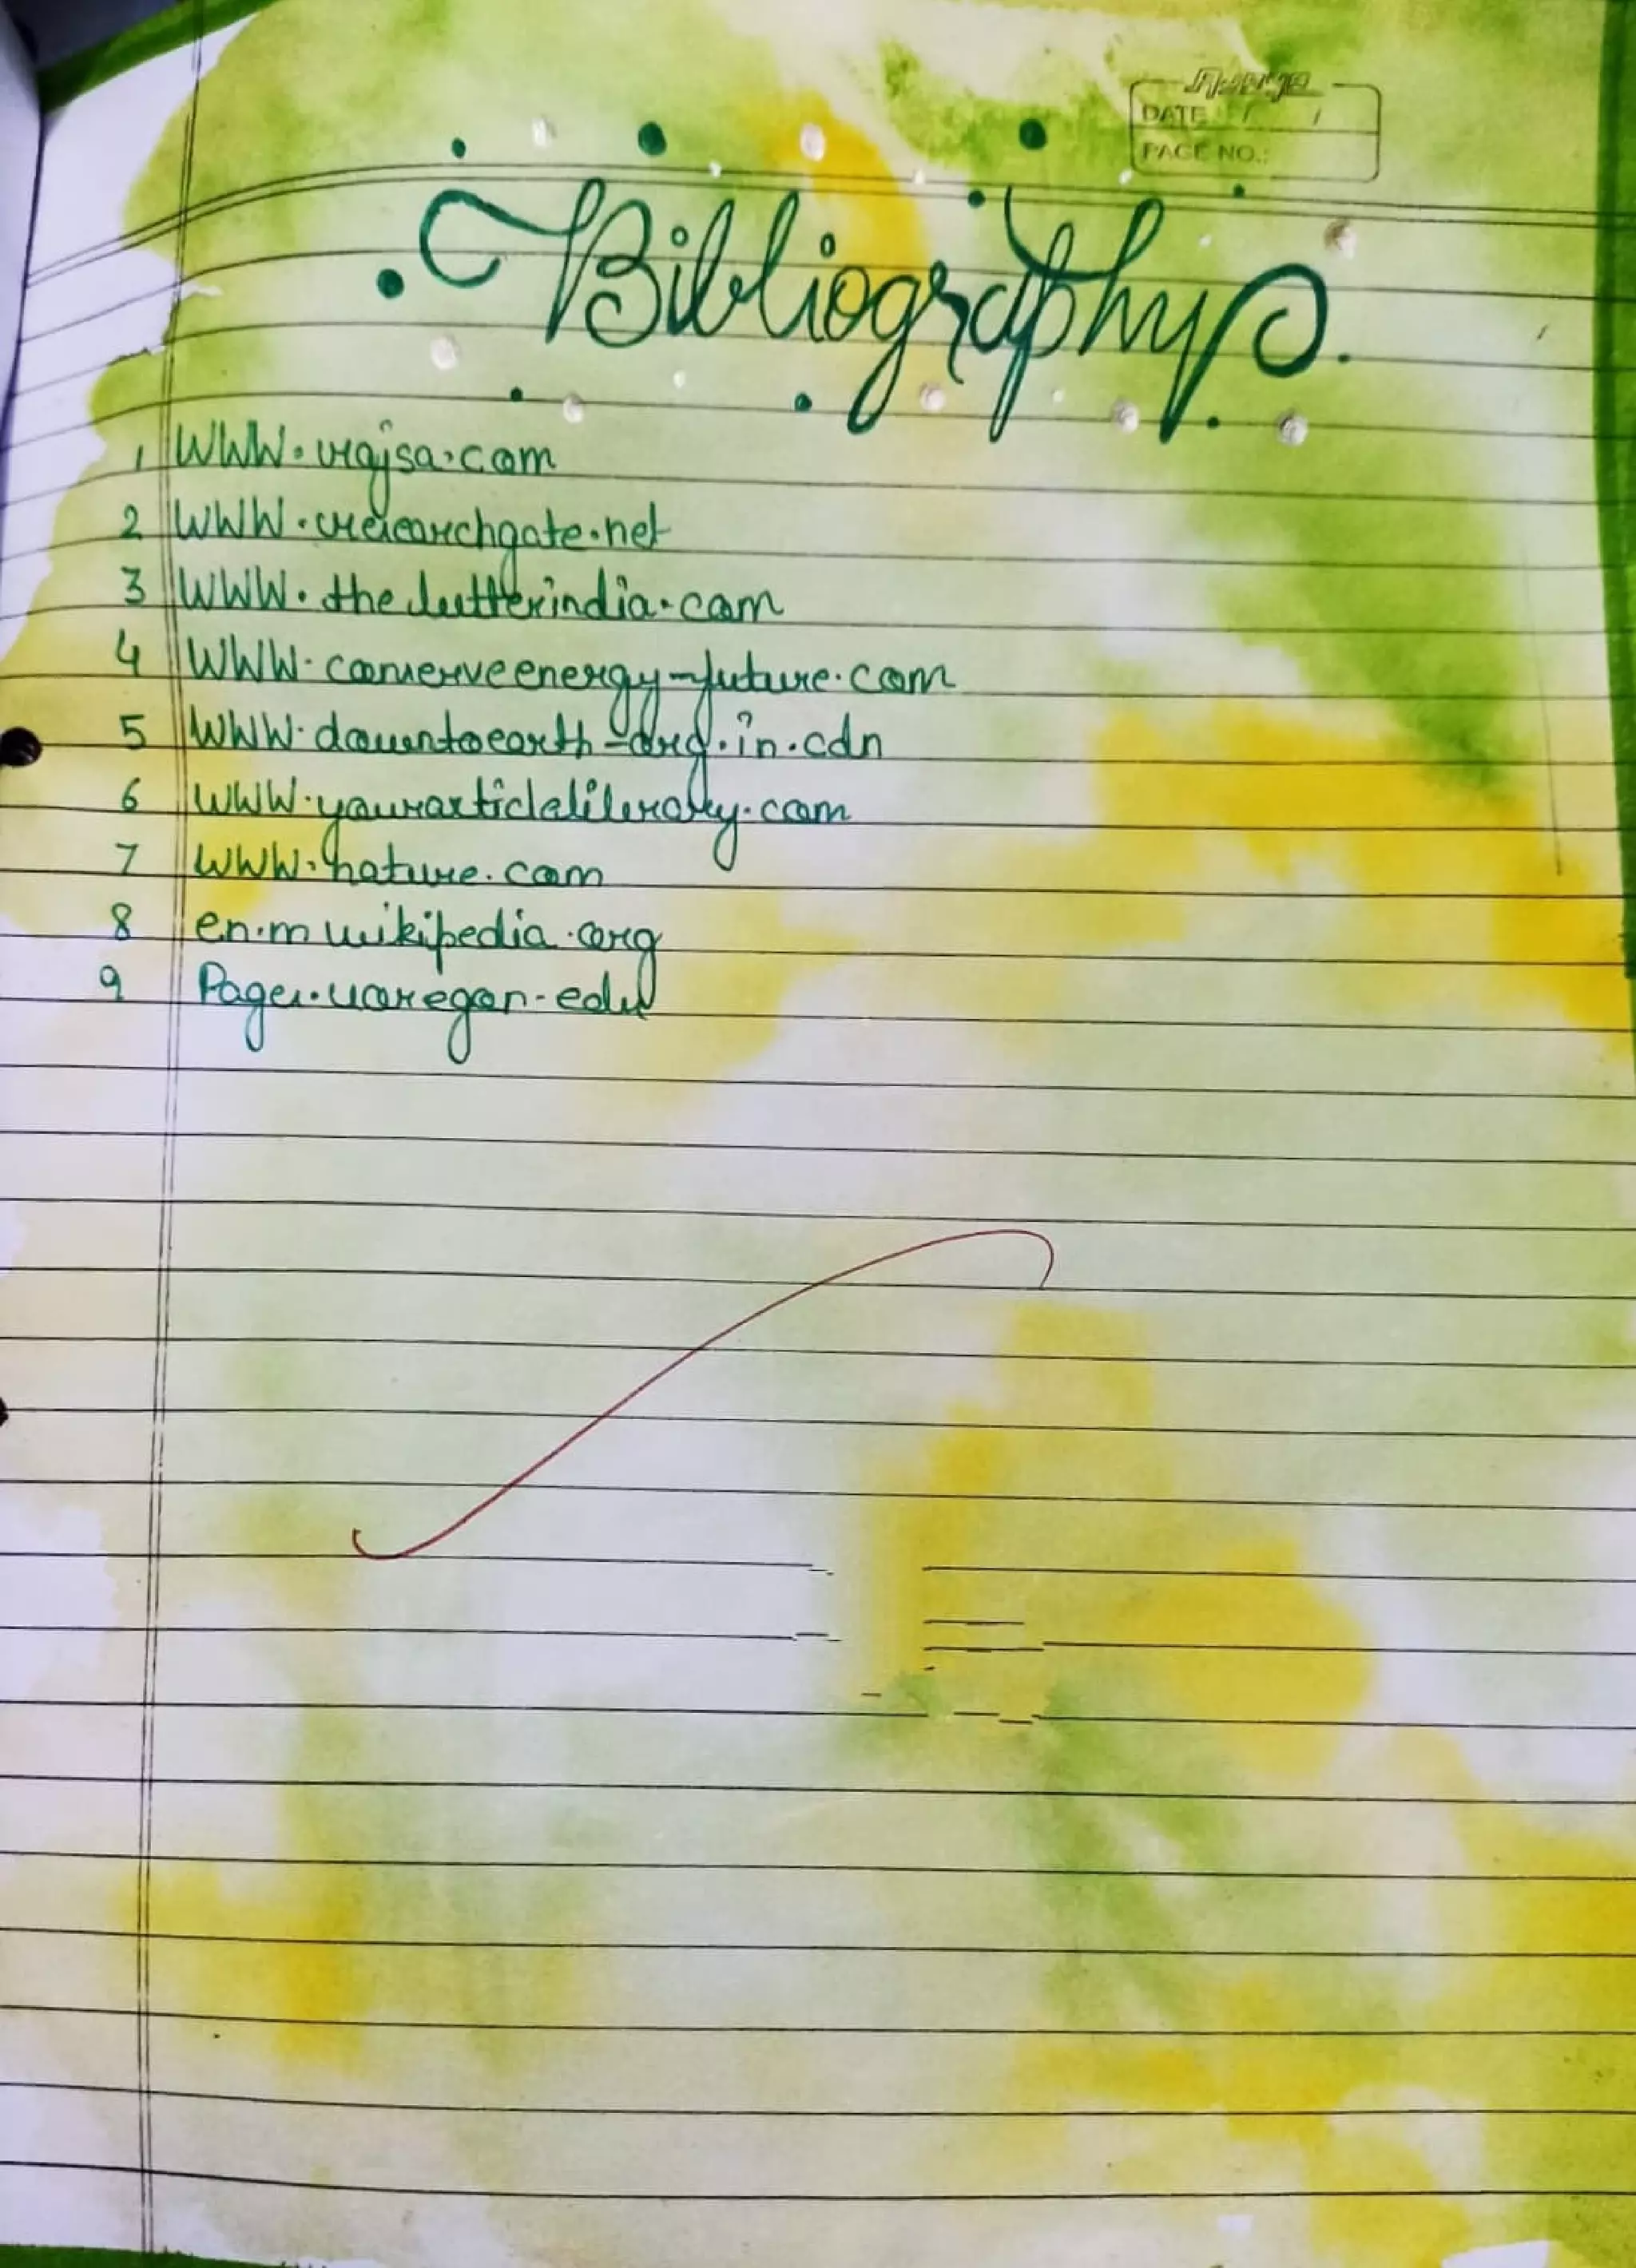 DATE / /
PAGE NO.:
Bibliography.
1 WWW.rajsa.com
2 WWW.researchgate.net
3 WWW.thebetterindia.com
4 WWW.conserveenergy-future.com
5 WWW.downtoearth-org.in.cdn
6 WWW.yourarticlelibrary.com
7 WWW.nature.com
8 en.m wikipedia.org
9 Pages.uoregon-edu